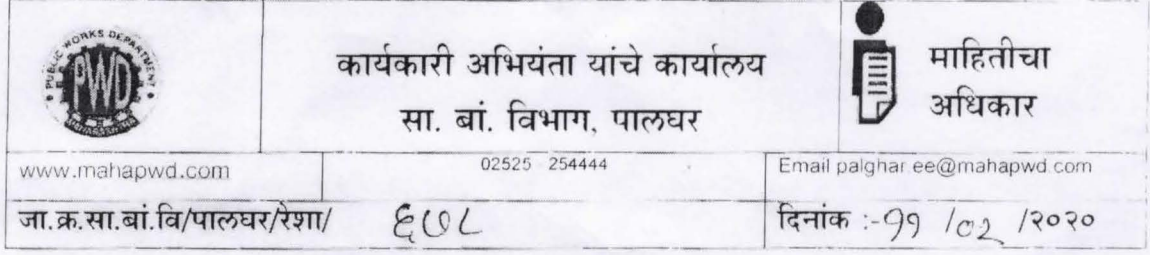 PUBLIC WORKS DEPARTMENT
PWD
MAHARASHTRA
कार्यकारी अभियंता यांचे कार्यालय
सा. बां. विभाग, पालघर
माहितीचा
अधिकार
www.mahapwd.com
02525 254444
Email palghar.ee@mahapwd.com
जा.क्र.सा.बां.वि/पालघर/रेशा/ ६७८
दिनांक :-११ /०२ /२०२०